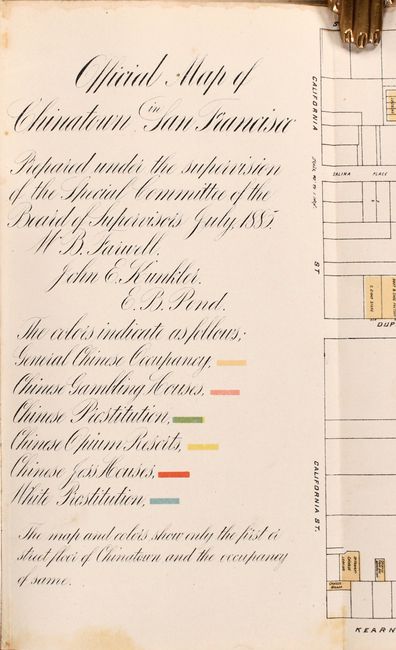 Official Map of
Chinatown in San Francisco
Prepared under the supervision
of the Special Committee of the
Board of Supervisors July, 1885.
W. B. Farwell.
John E. Kunkler.
E. B. Pond.
The colors indicate as follows;
General Chinese Occupancy,
Chinese Gambling Houses,
Chinese Prostitution,
Chinese Opium Resorts,
Chinese Joss Houses,
White Prostitution,
The map and colors show only the first or
street floor of Chinatown and the occupancy
of same.
CALIFORNIA
ST
SALINA PLACE
DUP
CALIFORNIA ST.
KEARN